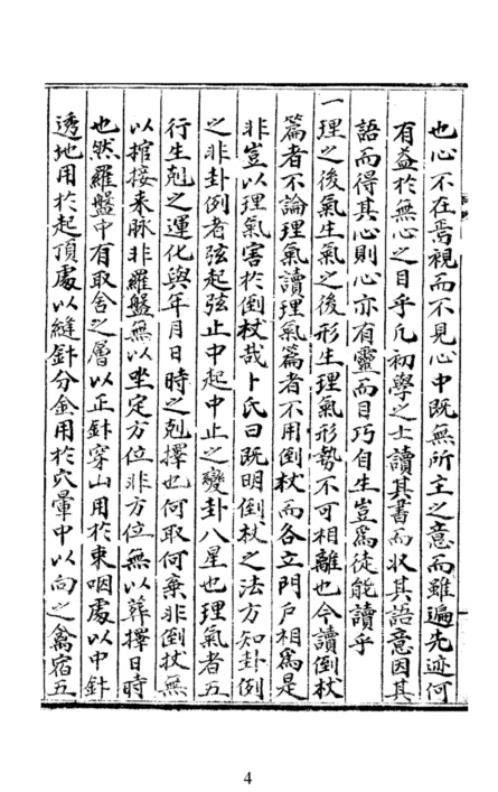 也心不在焉視而不見心中既無所主之意而雖遍先迹何
有益於無心之目乎凡初學之士讀其書而狀其語意因其
語而得其心則心亦有靈而目巧自生豈爲徒能讀乎
一理之後氣生氣之後形生理氣形勢不可相離也今讀倒杖
篇者不論理氣讀理氣篇者不用倒杖而各立門戶相爲是
非豈以理氣害於倒杖哉卜氏曰既明倒杖之法方知卦例
之非卦例者弦起弦止中起中止之變卦八星也理氣者五
行生剋之運化與年月日時之剋擇也何取何棄非倒杖無
以棺接來脉非羅盤無以坐定方位非方位無以葬擇日時
也然羅盤中有取舍之層以正針穿山用於束咽處以中針
透地用於起頂處以縫針分金用於穴暈中以向之禽宿五
4